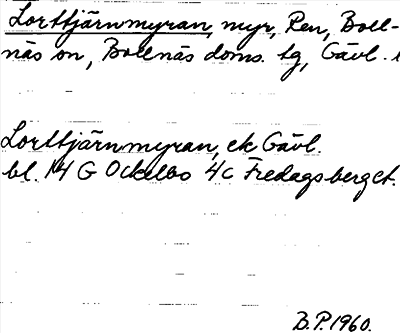 Lorttjärnmyran, myr, Ren, Boll-
näs sn, Bollnäs doms. tg, Gävl.
Lorttjärnmyran, ek Gävl.
bl. 14 G Ockelbo 4c Fredagsberget.
B.P. 1960.